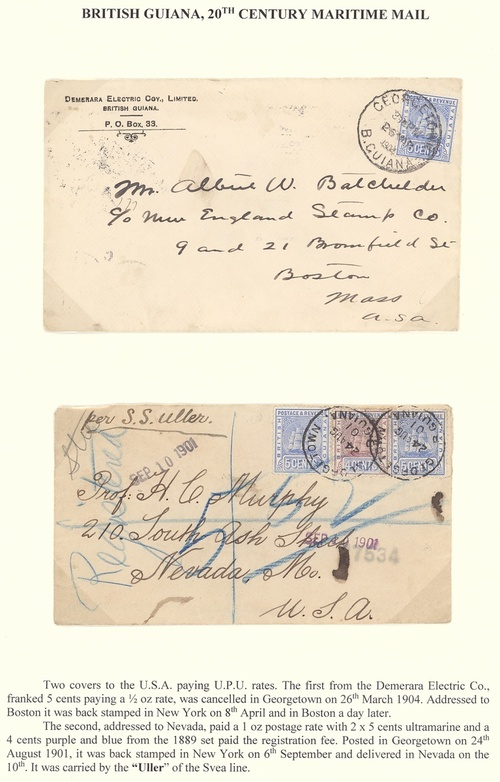 BRITISH GUIANA, 20TH CENTURY MARITIME MAIL
DEMERARA ELECTRIC COY., LIMITED.
BRITISH GUIANA.
P. O. BOX, 33.
GEORGETOWN
B. GUIANA
5 CENTS
Mr. Albert W. Batchelder
c/o New England Stamp Co.
9 and 21 Bromfield St
Boston
Mass
U.S.A.
per S.S. Uller.
Registered
SEP 10 1901
POSTAGE & REVENUE
5 CENTS
Prof. H. C. Murphy
210. South Ash Street
SEP 1901
7534
Nevada, Mo.
U.S.A.
Two covers to the U.S.A. paying U.P.U. rates. The first from the Demerara Electric Co.,
franked 5 cents paying a ½ oz rate, was cancelled in Georgetown on 26th March 1904. Addressed to
Boston it was back stamped in New York on 8th April and in Boston a day later.
The second, addressed to Nevada, paid a 1 oz postage rate with 2 x 5 cents ultramarine and a
4 cents purple and blue from the 1889 set paid the registration fee. Posted in Georgetown on 24th
August 1901, it was back stamped in New York on 6th September and delivered in Nevada on the
10th. It was carried by the “Uller” of the Svea line.